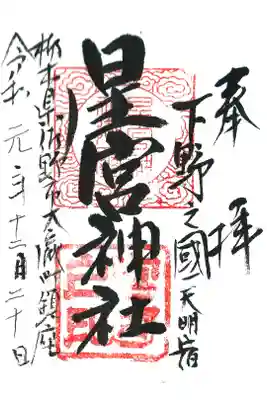 奉拝
下野之國 天明宿
星宮神社
栃木県佐野市大蔵町鎮座
令和元年十二月二十日